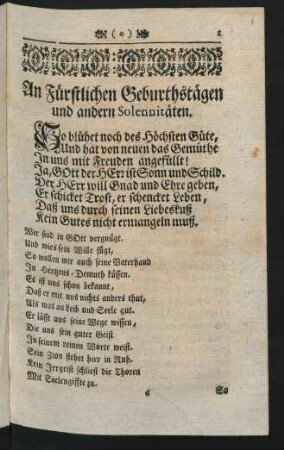 ( o )
An Fürstlichen Geburthstägen
und andern Solennitäten.
So blühet noch des Höchsten Güte,
Und hat von neuen das Gemüthe
In uns mit Freuden angefüllt!
Ja, GOtt der HErr ist Sonn und Schild.
Der HErr will Gnad und Ehre geben,
Er schicket Trost, er schencket Leben,
Daß uns durch seinen Liebeskuß
Kein Gutes nicht ermangeln muß.
Wir sind in GOtt vergnügt.
Und wies sein Wille fügt,
So wollen wir auch seine Vaterhand
In Hertzens-Demuth küssen.
Es ist uns schon bekannt,
Daß er mit uns nichts anders thut,
Als was an Leib und Seele gut.
Er lässt uns seine Wege wissen,
Die uns sein guter Geist
In seinem reinen Worte weist.
Sein Zion stehet hier in Ruh.
Kein Irrgeist schliest die Thoren
Mit Seelengiffte zu.
a So